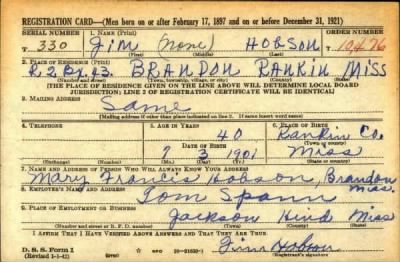 REGISTRATION CARD—(Men born on or after February 17, 1897 and on or before December 31, 1921)
SERIAL NUMBER 1. NAME (Print) ORDER NUMBER
T 330 Jim (none) Hobson 10,476
(First) (Middle) (Last)
2. PLACE OF RESIDENCE (Print)
R2 Bx 43. BRANDON RANKIN MISS
(Number and street) (Town, township, village, or city) (County) (State)
[THE PLACE OF RESIDENCE GIVEN ON THE LINE ABOVE WILL DETERMINE LOCAL BOARD
JURISDICTION; LINE 2 OF REGISTRATION CERTIFICATE WILL BE IDENTICAL]
3. MAILING ADDRESS
Same
[Mailing address if other than place indicated on line 2. If same insert word same]
4. TELEPHONE 5. AGE IN YEARS 6. PLACE OF BIRTH
40 Rankin Co.
DATE OF BIRTH (Town or county)
7 3 1901 Miss
(Exchange) (Number) (Mo.) (Day) (Yr.) (State or country)
7. NAME AND ADDRESS OF PERSON WHO WILL ALWAYS KNOW YOUR ADDRESS
Mary Francis Hobson, Brandon
8. EMPLOYER'S NAME AND ADDRESS Miss.
Tom Spann
9. PLACE OF EMPLOYMENT OR BUSINESS
Jackson Hind Miss
(Number and street or R. F. D. number) (Town) (County) (State)
I AFFIRM THAT I HAVE VERIFIED ABOVE ANSWERS AND THAT THEY ARE TRUE.
D. S. S. Form 1
(Revised 1-1-42) (over) 16—21630-1 Jim Hobson
(Registrant's signature)